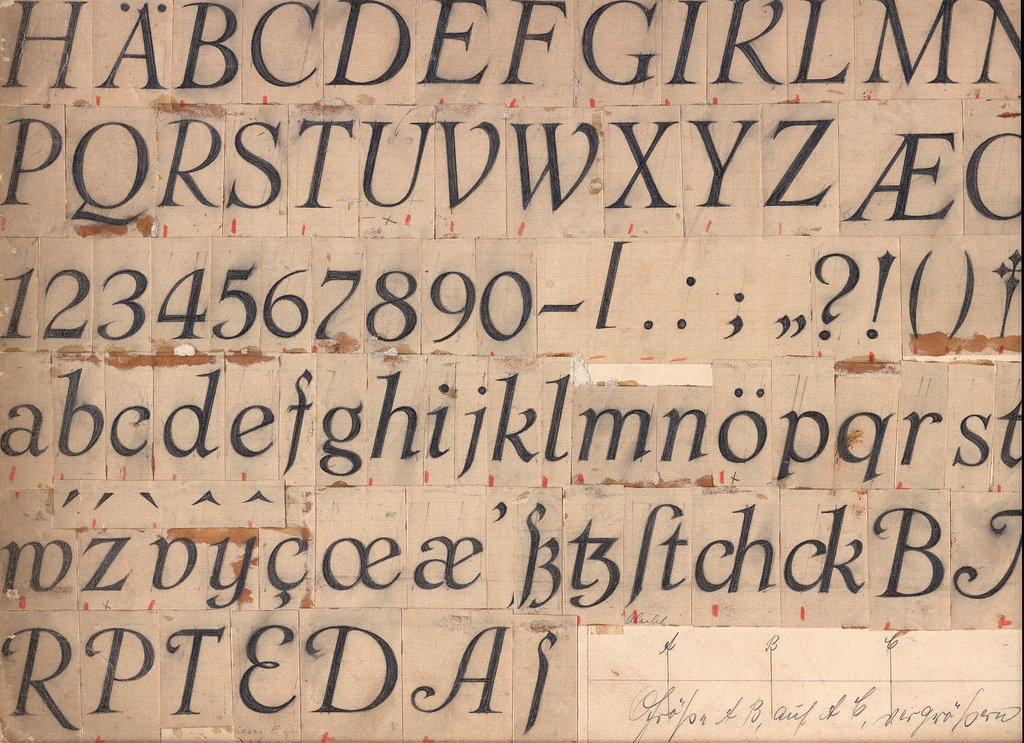 HÄBCDEFGIKLMN
PQRSTUVWXYZÆO
1234567890-l.:;„?!()†
abcdefghijklmnöpqrst
´ ´ ` ^ ^
wzvyçœæ’ßtzſtchckBT
RPTEDAſ
A B C
Größe A B, auf A C, vergrößern